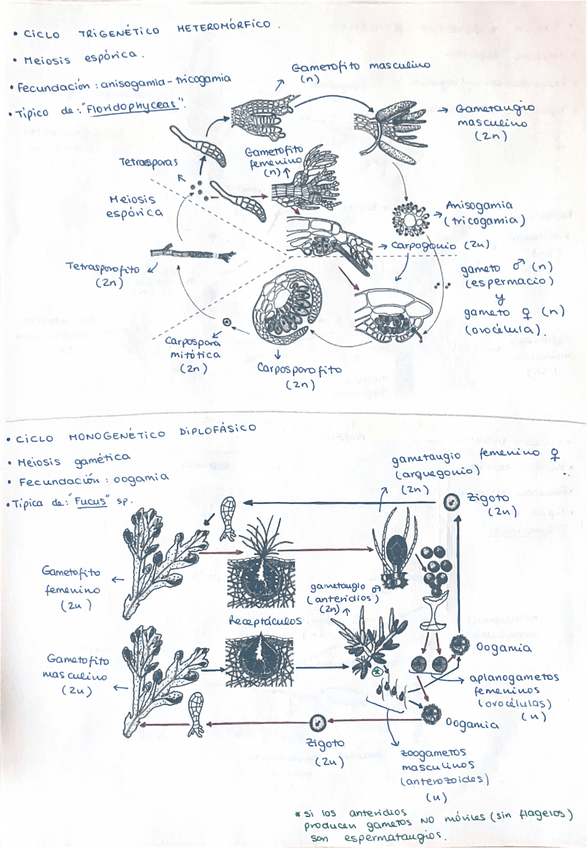 • CICLO TRIGENÉTICO HETEROMÓRFICO.
• Meiosis espórica.
• Fecundación: anisogamia-tricogamia
• Típico de: "Floridophyceas".
Gametofito masculino
(n)
→ Gametaugio
masculino
(2n)
Gametofito
femenino
(n)
Tetrasporas
Meiosis
espórica
Anisogamia
(tricogamia)
→ Carpogonio (2n)
Tetrasporofito
(2n)
gameto ♂ (n)
(espermacio)
y
gameto ♀ (n)
(ovocélula).
Carpospora
mitótica
(2n)
Carposporofito
(2n)
• CICLO MONOGENÉTICO DIPLOFÁSICO
• Meiosis gamética
• Fecundación: oogamia
• Típica de: "Fucus" sp.
gametaugio femenino ♀
(arquegonio)
(2n)
Zigoto
(2n)
Gametofito
femenino
(2n)
gametaugio ♂
(anteridios)
(2n)
Receptáculos
Oogamia
Gametofito
masculino
(2n)
aplanogametos
femeninos
(ovocélulas)
(n)
Oogamia
Zigoto
(2n)
zoogametos
masculinos
(anterozoides)
(n)
* si los anteridios
producen gametos NO móviles (sin flagelos)
son espermataugios.